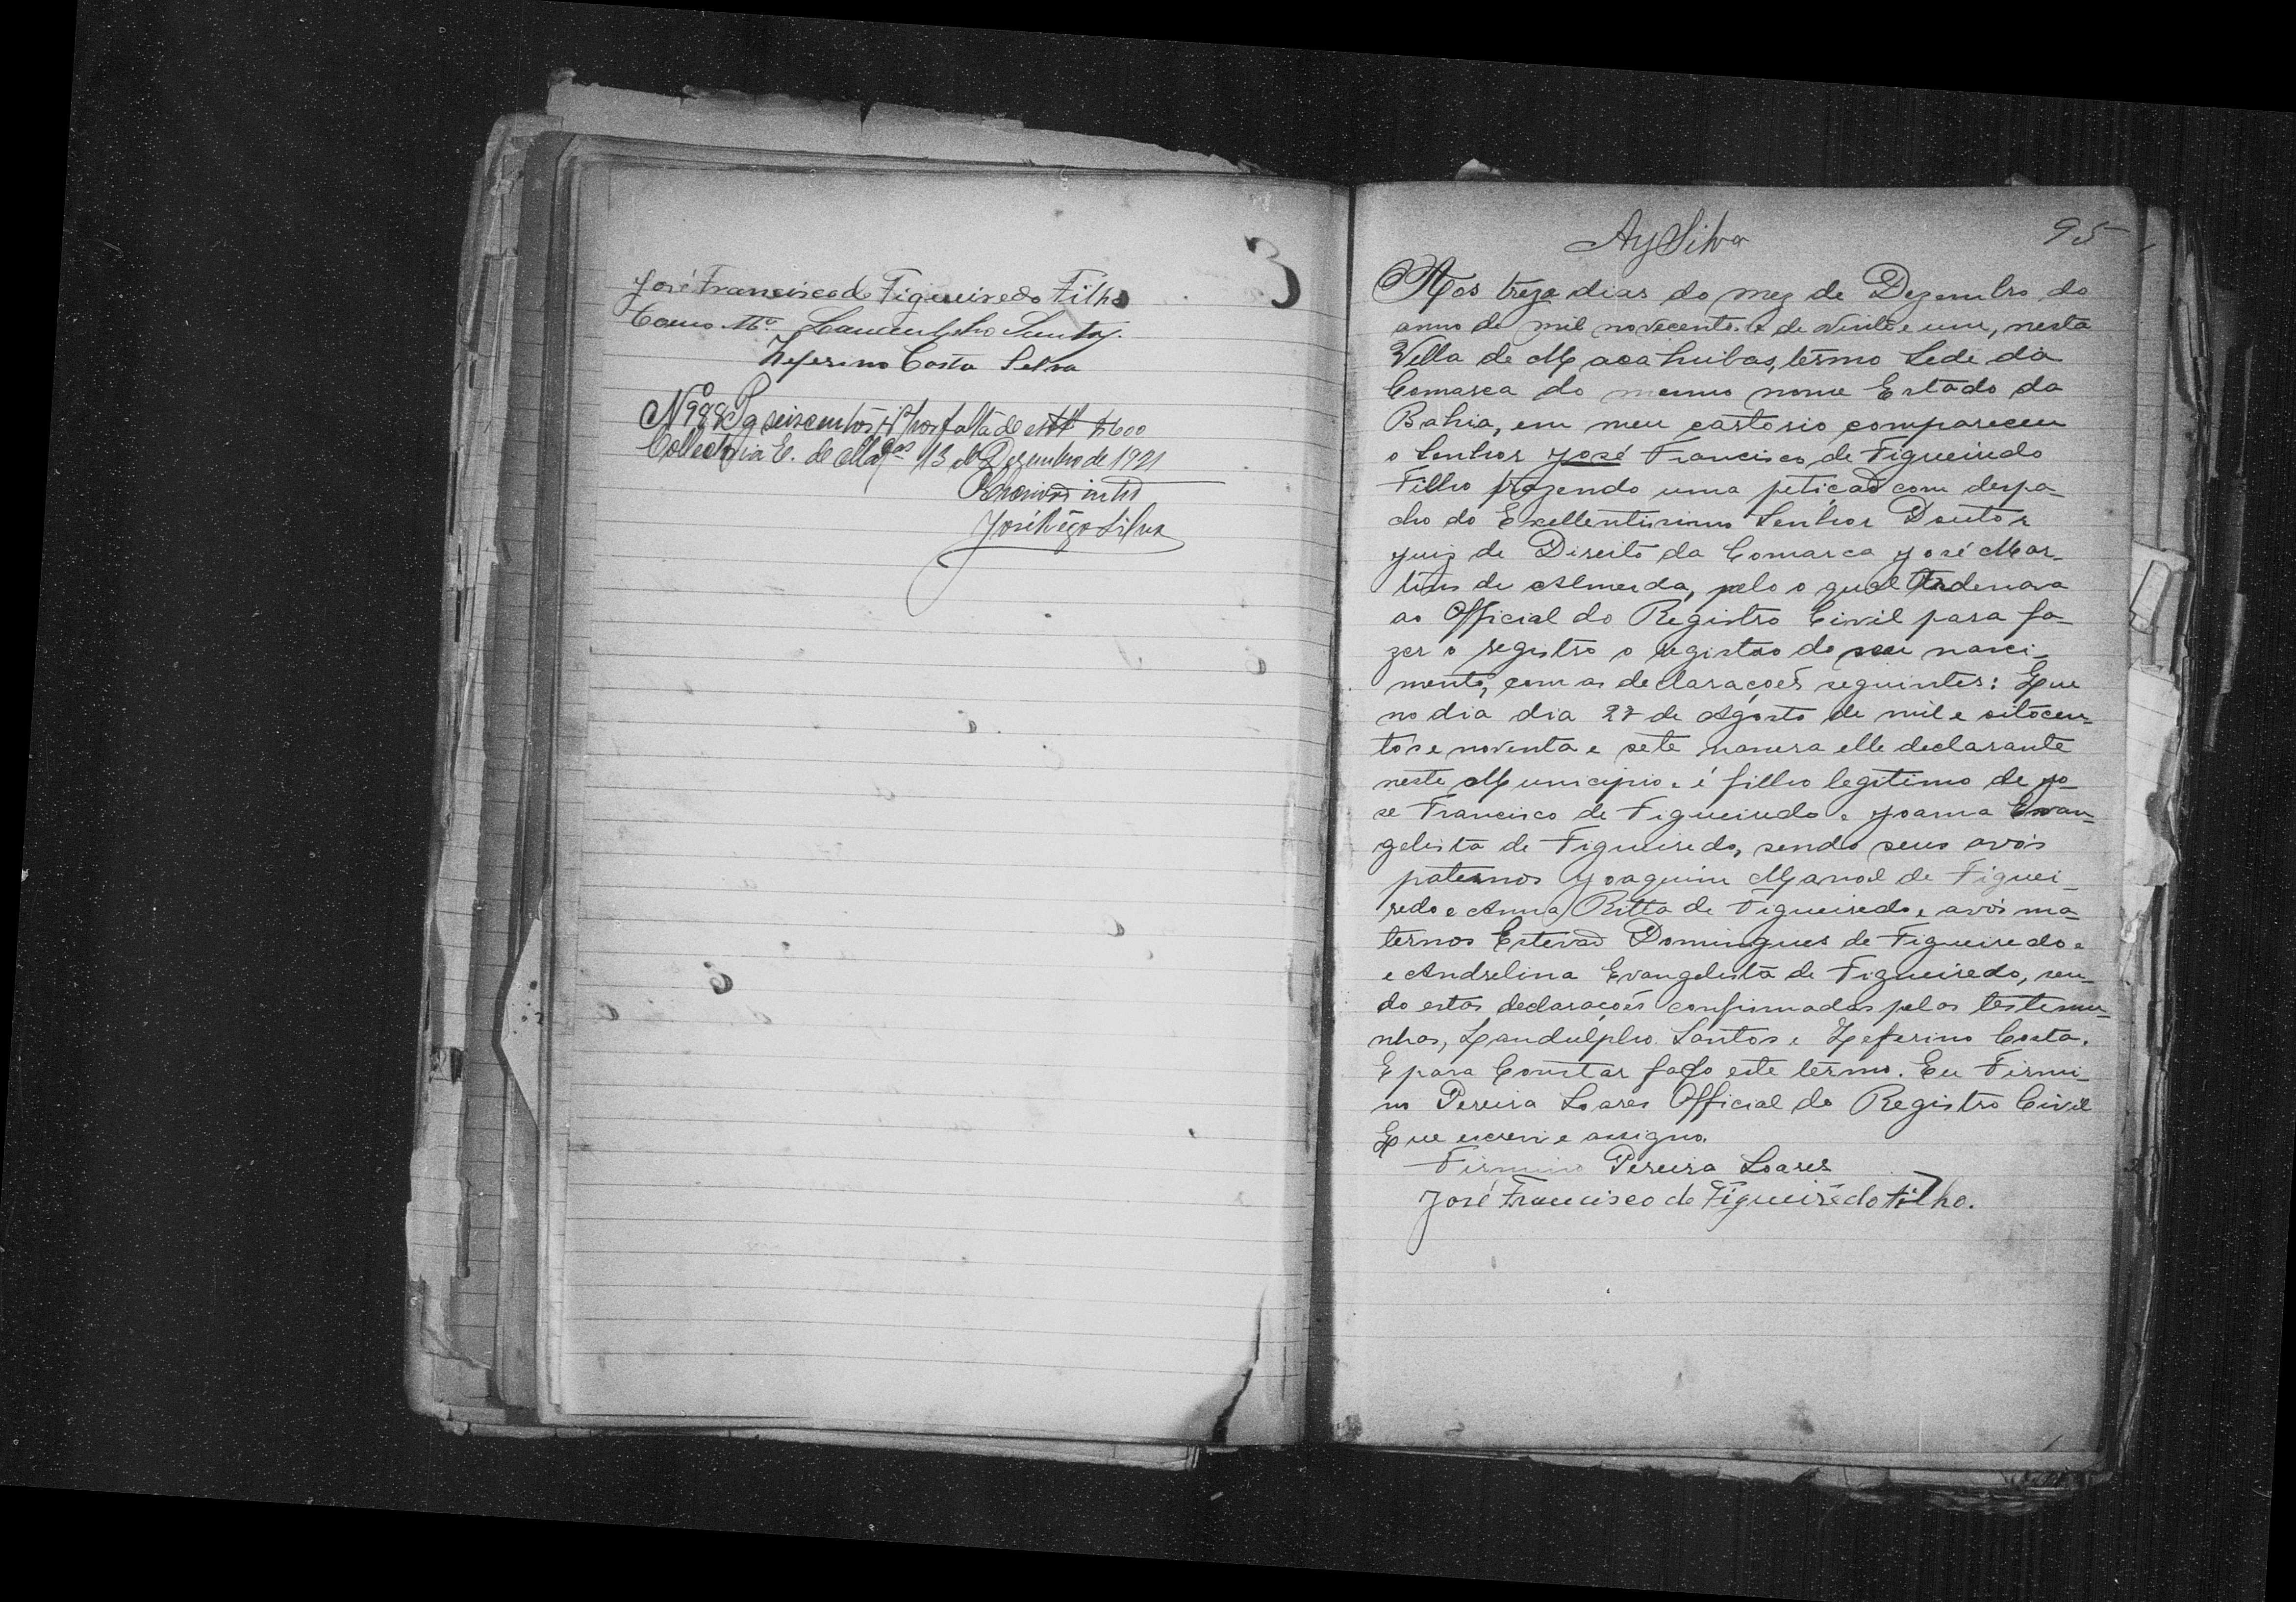 José Francisco de Figueiredo Filho
Como Tª. Landulpho Santos.
Zeferino Costa Silva
Nº 988 Pg seiscentos rs por falta de estª $600
Collectoria E. de Macªbas 13 de Dezembro de 1921
Escrivão intº
José Rêgo Silva
3
Ay Silva
95
Aos treze dias do mez de Dezembro do
anno de mil novecentos e de vinte e um, nesta
Villa de Macahubas, têrmo Sede da
Comarca do mesmo nome Estado da
Bahia, em meu cartorio compareceu
o Senhor José Francisco de Figueiredo
Filho trazendo uma petição com despa-
cho do Exellentissimo Senhor Doutor
Juiz de Direito da Comarca José Mar-
tins de Almeida, pelo o qual Ordenava
ao Official do Registro Civil para fa-
zer o registro o registro do seu nasci-
mento, com as declarações seguintes: Que
no dia dia 27 de Agosto de mil e oitocen-
tos e noventa e sete nascera elle declarante
neste Municipio e é filho legitimo de Jo-
se Francisco de Figueiredo e Joanna Evan-
gelista de Figueiredo, sendo seus avós
paternos Joaquim Manoel de Figuei-
redo e Anna Ritta de Figueiredo e avós ma-
ternos Estevão Domingues de Figueiredo e
e Andrelina Evangelista de Figueiredo, sen-
do estas declarações confirmadas pelas testemu-
nhas, Landulpho Santos e Zeferino Costa.
E para Constar faço este têrmo. Eu Firmi-
no Pereira Soares Official do Registro Civil
Que escrevi e assigno.
Firmino Pereira Soares
José Francisco de Figueirêdo Filho.